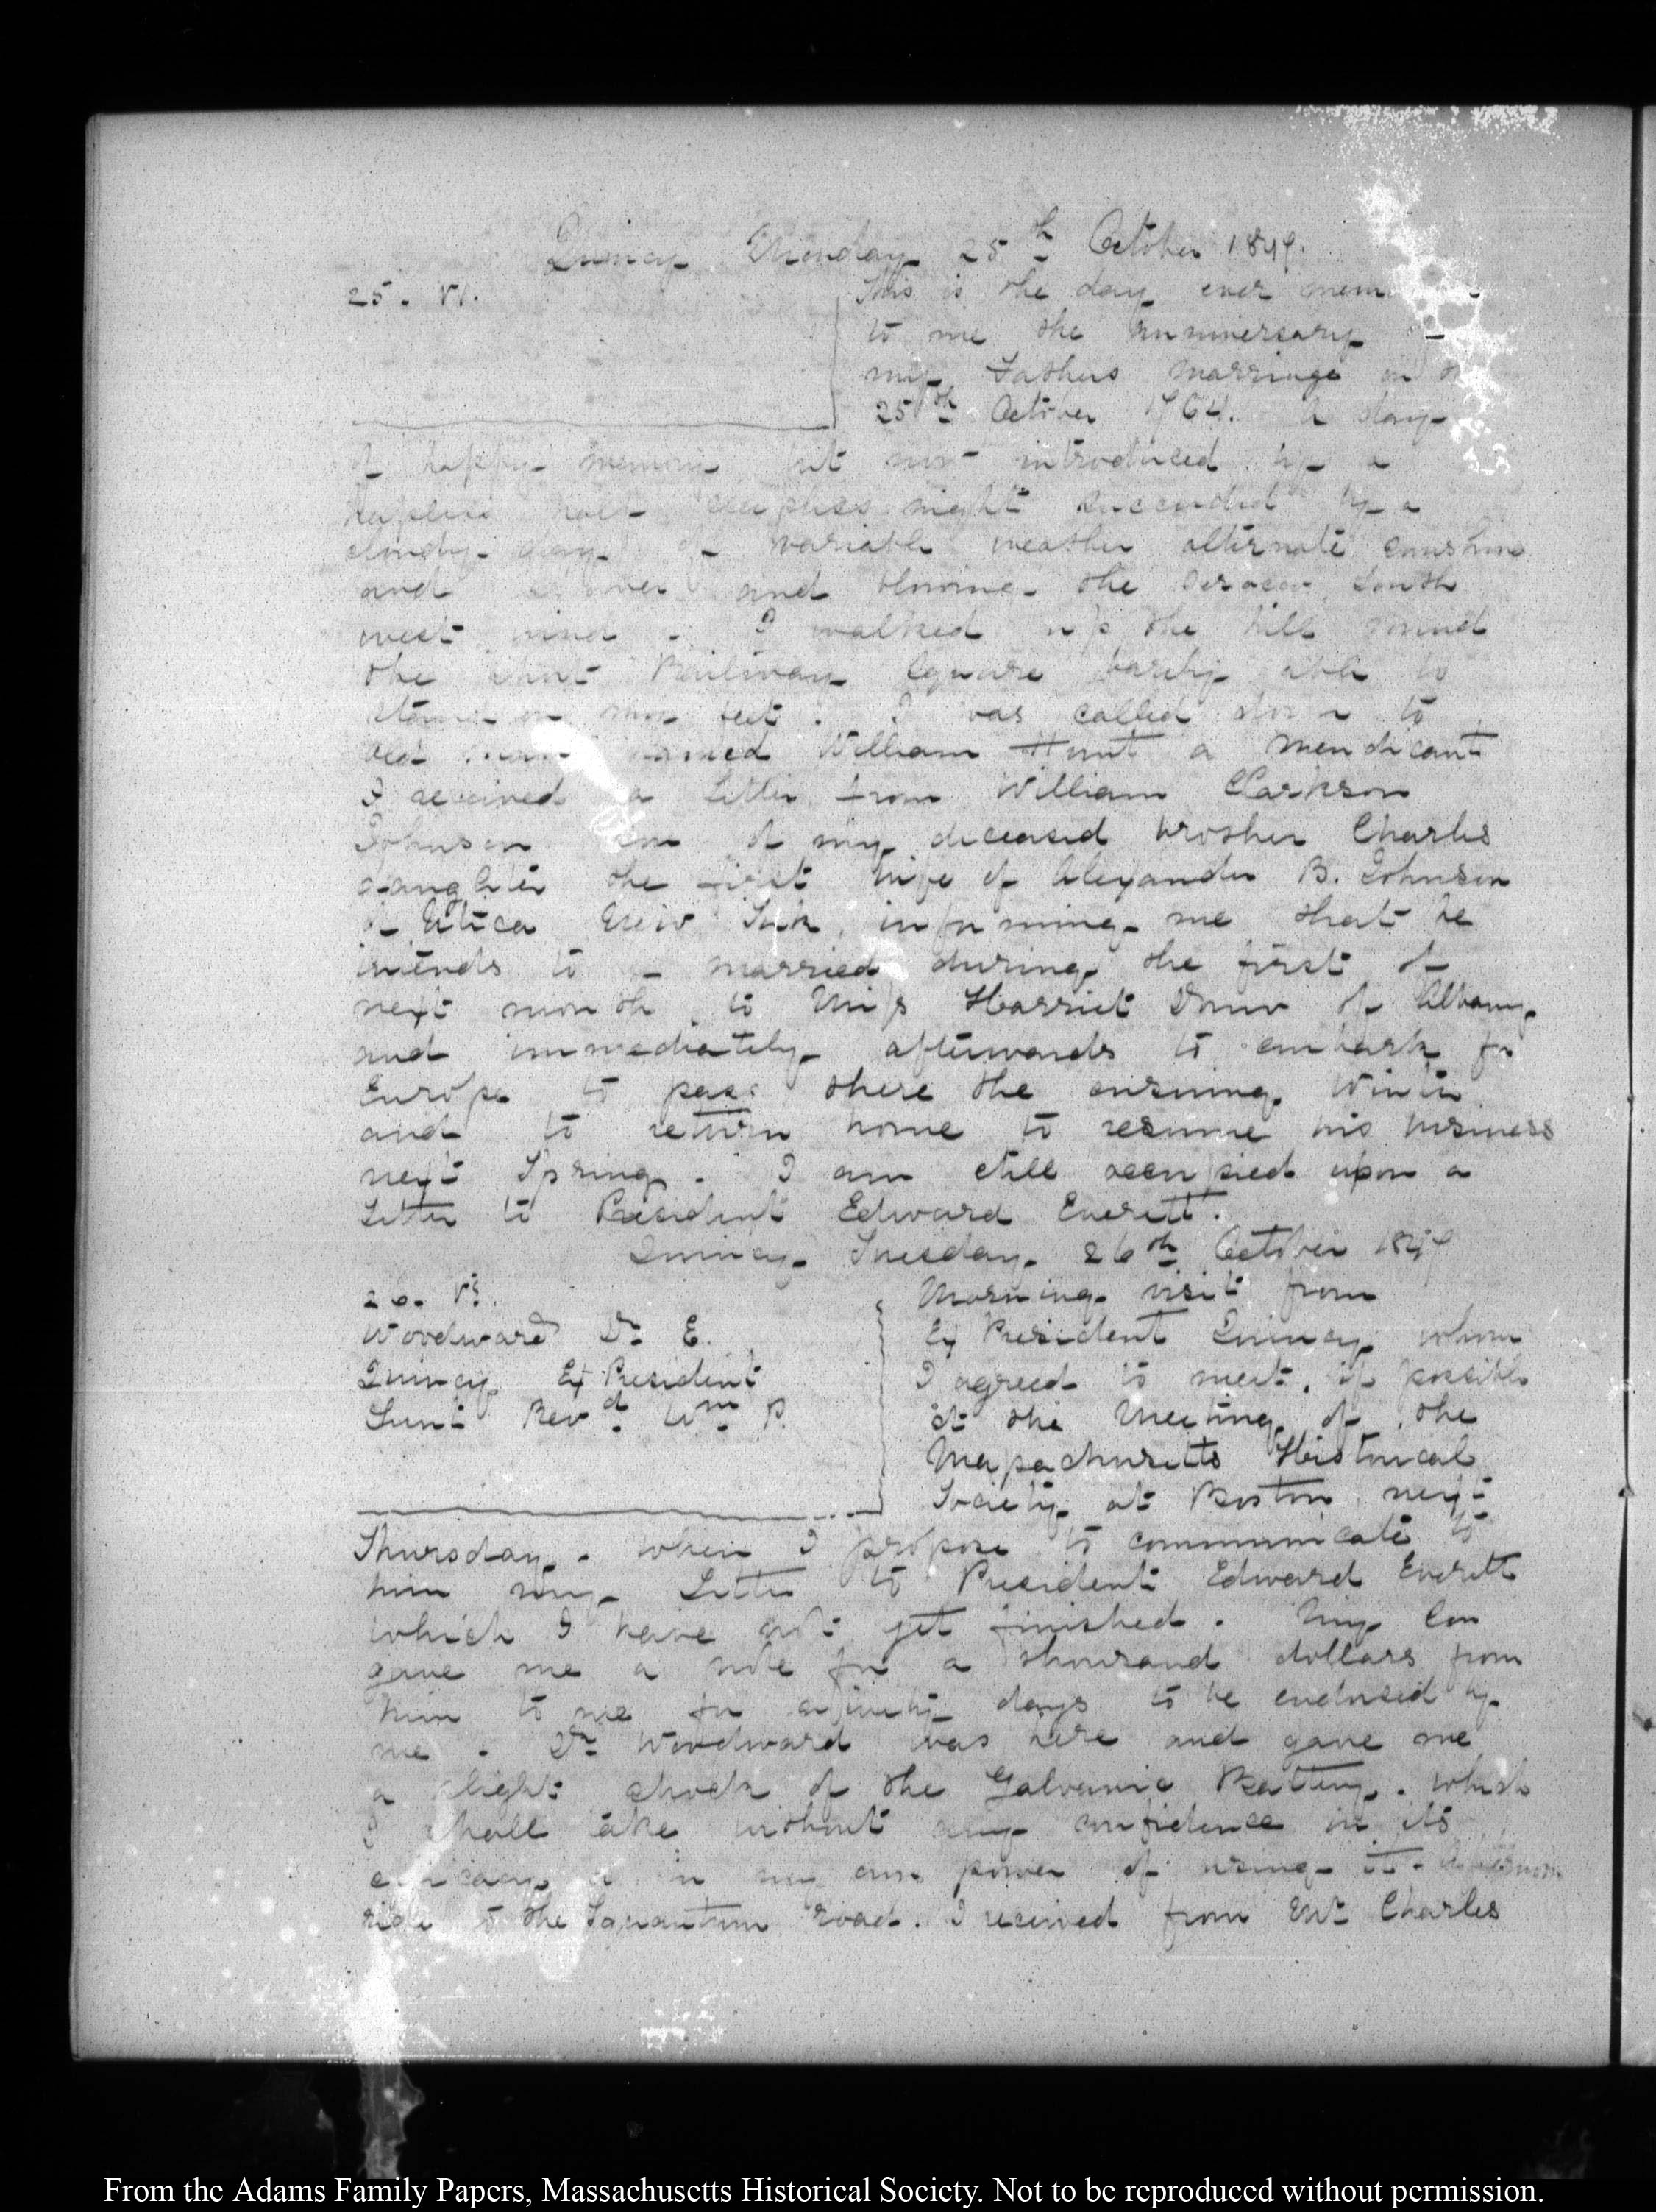 Quincy Monday 25th October 1847.
25. VI.
This is the day ever mem
to me the anniversary
my Fathers marriage on
25th October 1764. A day
of happy memory but now introduced by a
hapless half sleepless night succeeded by a
cloudy day of variable weather alternate sunshine
and shower and blowing the Sirocco South
west wind. I walked up the hill round
the Railway Square barely able to
stand on my feet. I was called down to
old man named William Hunt a mendicant
I received a Letter from William Clarkson
Johnson son of my deceased brother Charles
daughter the first wife of Alexander B. Johnson
of Utica New York, informing me that he
intends to be married during the first of
next month, to Miss Harriet Douw of Albany
and immediately afterwards to embark for
Europe to pass there the ensuing Winter
and to return home to resume his business
next Spring. I am still occupied upon a
Letter to President Edward Everett.
Quincy Tuesday 26th October 1847
26. V:
Woodward Dr. E.
Quincy Ex President
Lunt Revd. Wm. P.
Morning visit from
Ex President Quincy whom
I agreed to meet, if possible
at the Meeting of the
Massachusetts Historical
Society at Boston next
Thursday. when I propose to communicate to
him my Letter to President Edward Everett
which I have not yet finished. My Son
gave me a note for a thousand dollars from
him to me for ninety days to be endorsed by
me. Dr. Woodward was here and gave me
a slight shock of the Galvanic Battery. which
I shall take without any confidence in its
efficacy or in my own power of using it. Afternoon
ride to the Squantum road. I received from Mr. Charles
From the Adams Family Papers, Massachusetts Historical Society. Not to be reproduced without permission.